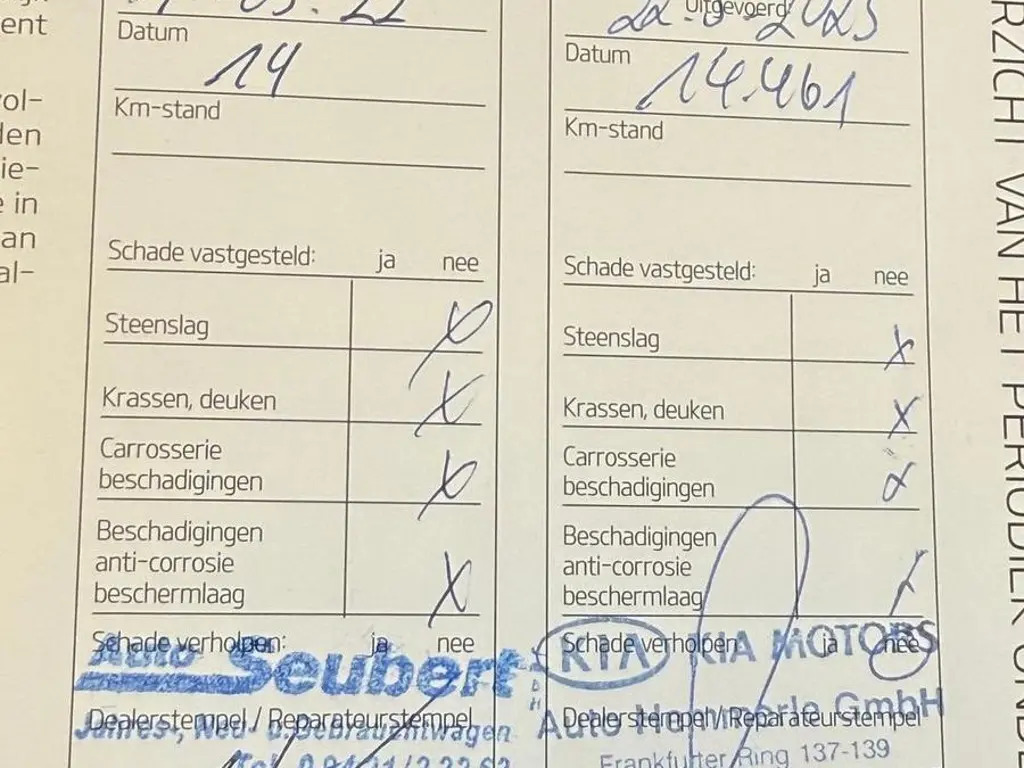 ent
vol-
den
ie-
e in
an
al-
Datum
14
Km-stand
Schade vastgesteld: ja nee
Steenslag X
Krassen, deuken X
Carrosserie
beschadigingen X
Beschadigingen
anti-corrosie
beschermlaag X
Schade verholpen: ja nee
Auto Seubert
Dealerstempel / Reparateurstempel
Jahres-, Neu- u. Gebrauchtwagen
Uitgevoerd:
Datum
14.461
Km-stand
Schade vastgesteld: ja nee
Steenslag X
Krassen, deuken X
Carrosserie
beschadigingen X
Beschadigingen
anti-corrosie
beschermlaag X
Schade verholpen ja nee
KIA KIA MOTORS
Dealerstempel/Reparateurstempel
Auto GmbH
Frankfurter Ring 137-139
RZICHT VAN HET PERIODIEK ONDE